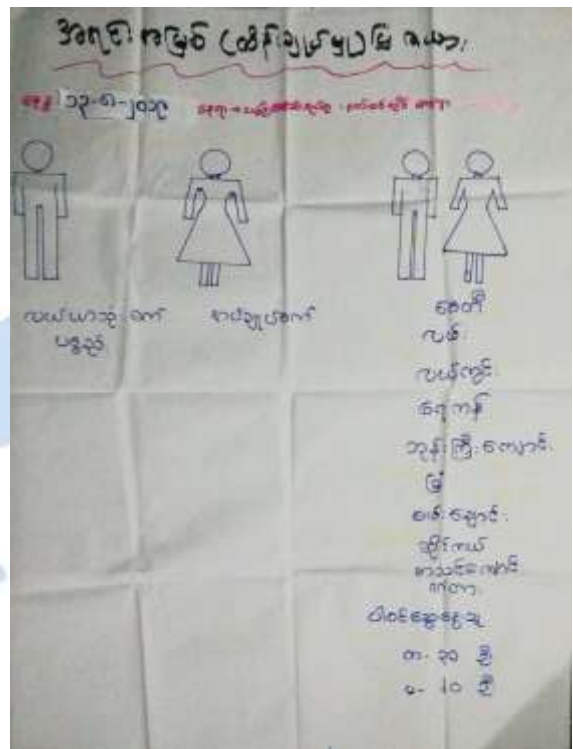 အရင်းအမြစ် (ထိန်းချုပ်မှု) ပြ ဇယား
နေ့စွဲ ၁၃-၈-၂၀၁၉
လယ်ယာသုံးစက်
ပစ္စည်း
စာပ်ချုပ်စက်
စေတီ
လမ်း
လယ်ကွင်း
ရေကန်
ဘုန်းကြီးကျောင်း
ခြံ
စမ်းချောင်း
ဆိုင်ကယ်
စာသင်ကျောင်း
ပါဝင်ဆွေးနွေးသူ
က - ၃၁ ဦး
မ - ၂၀ ဦး